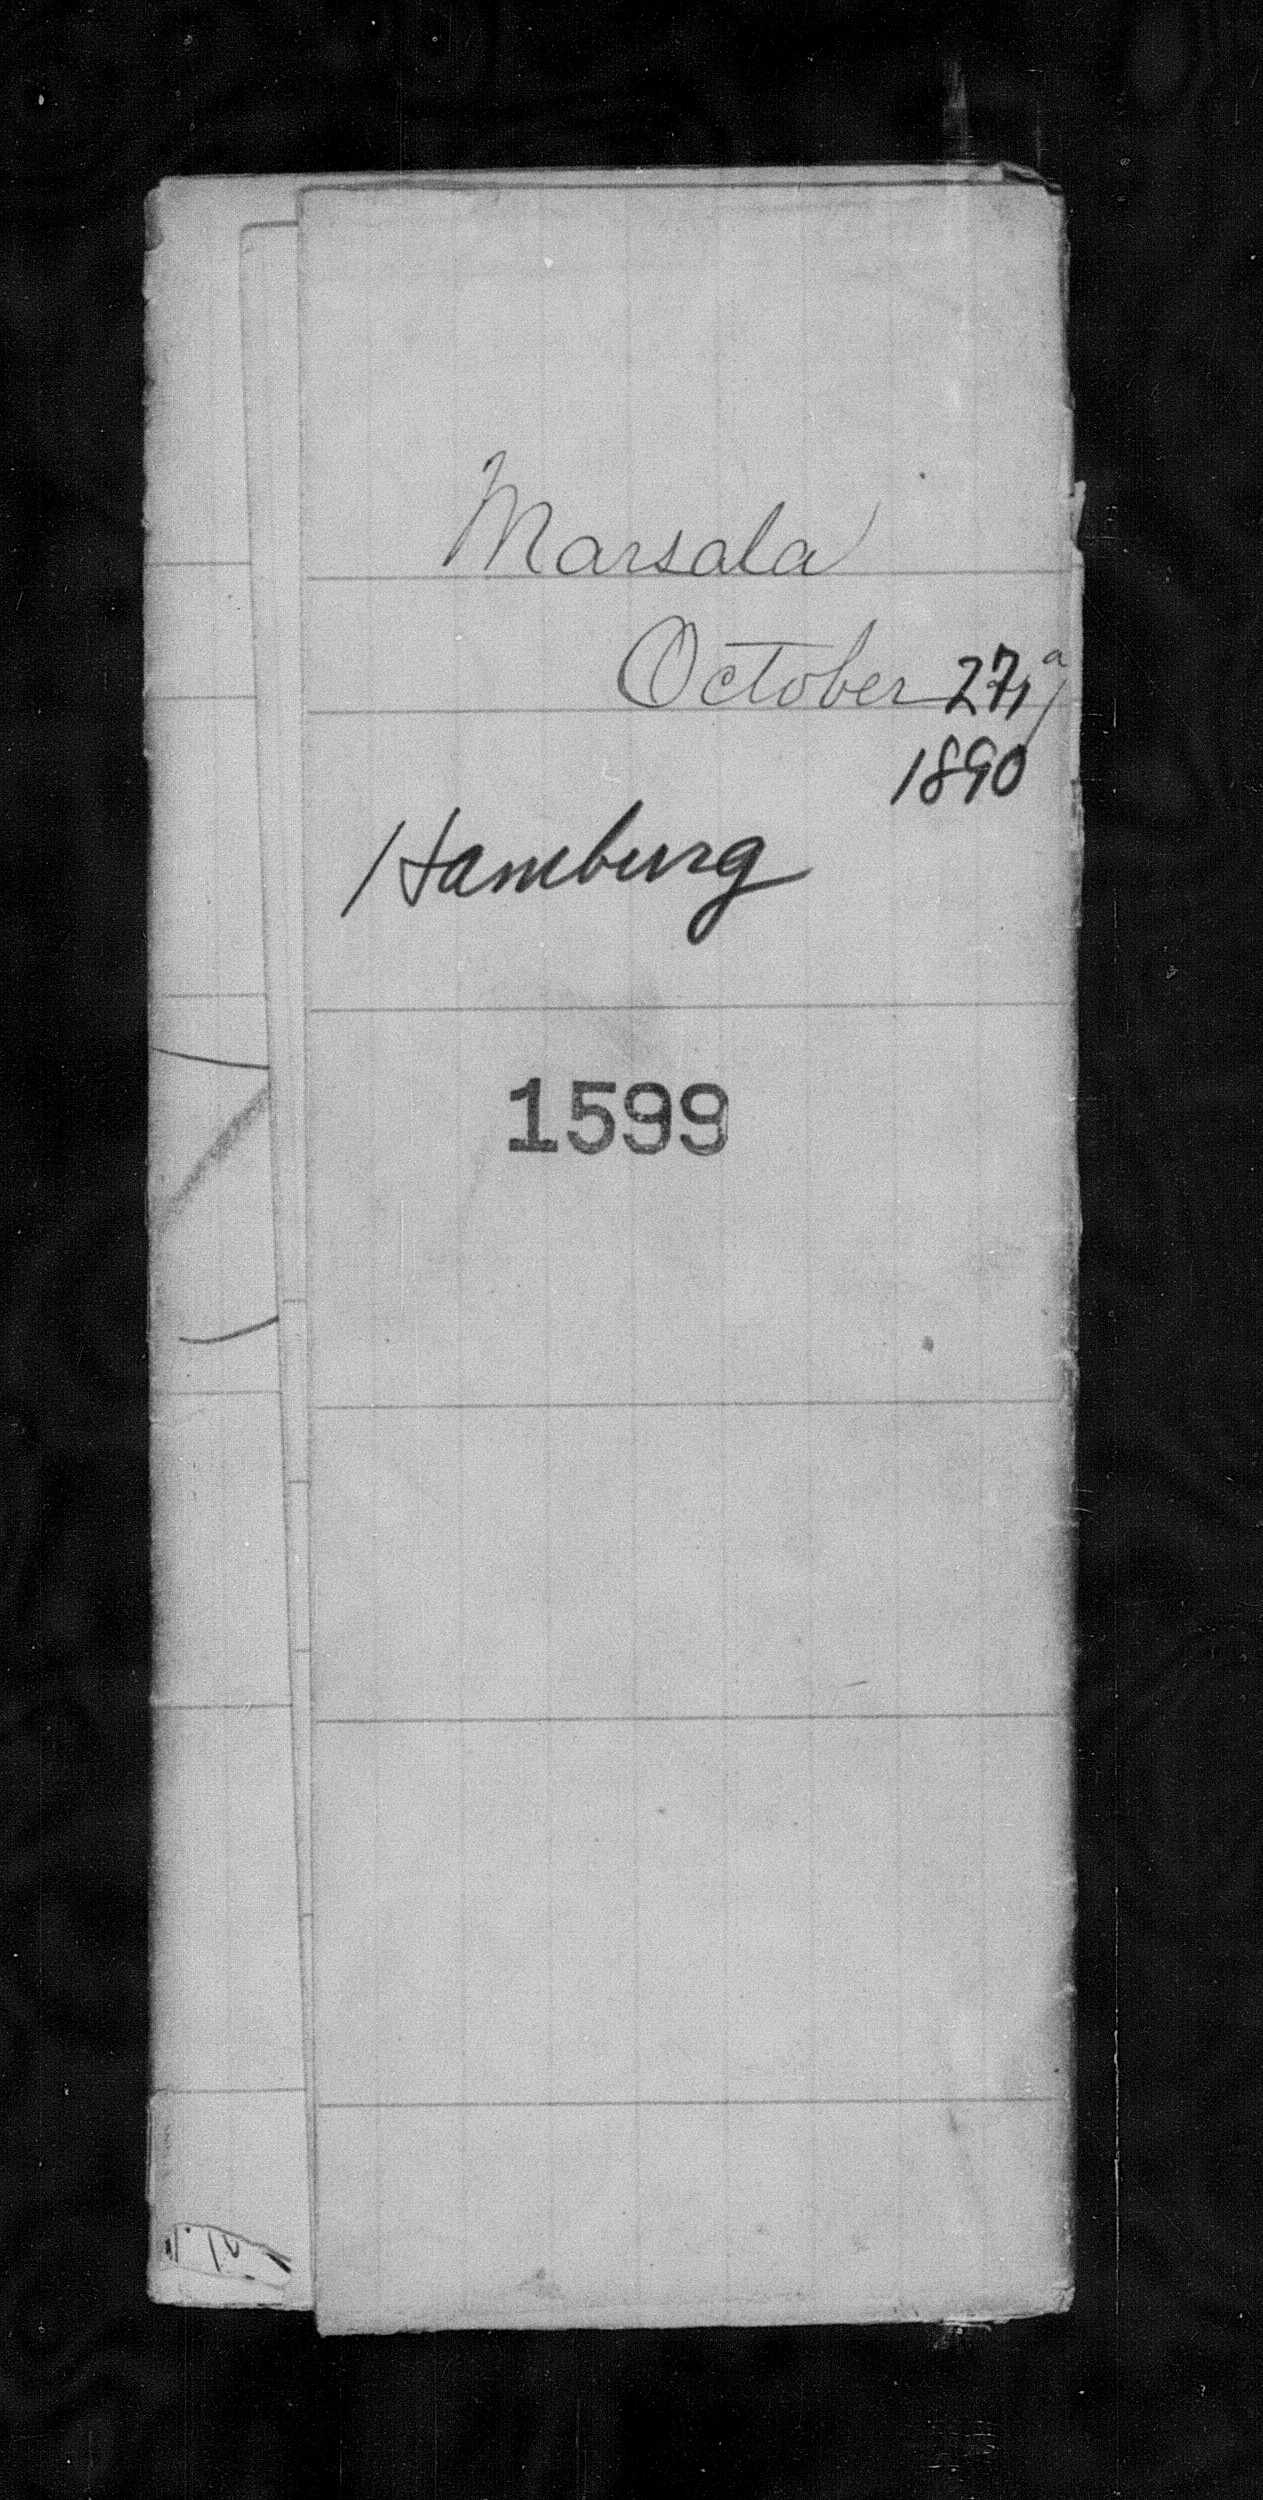 Marsala
October 27, a
1890
Hamburg
1599